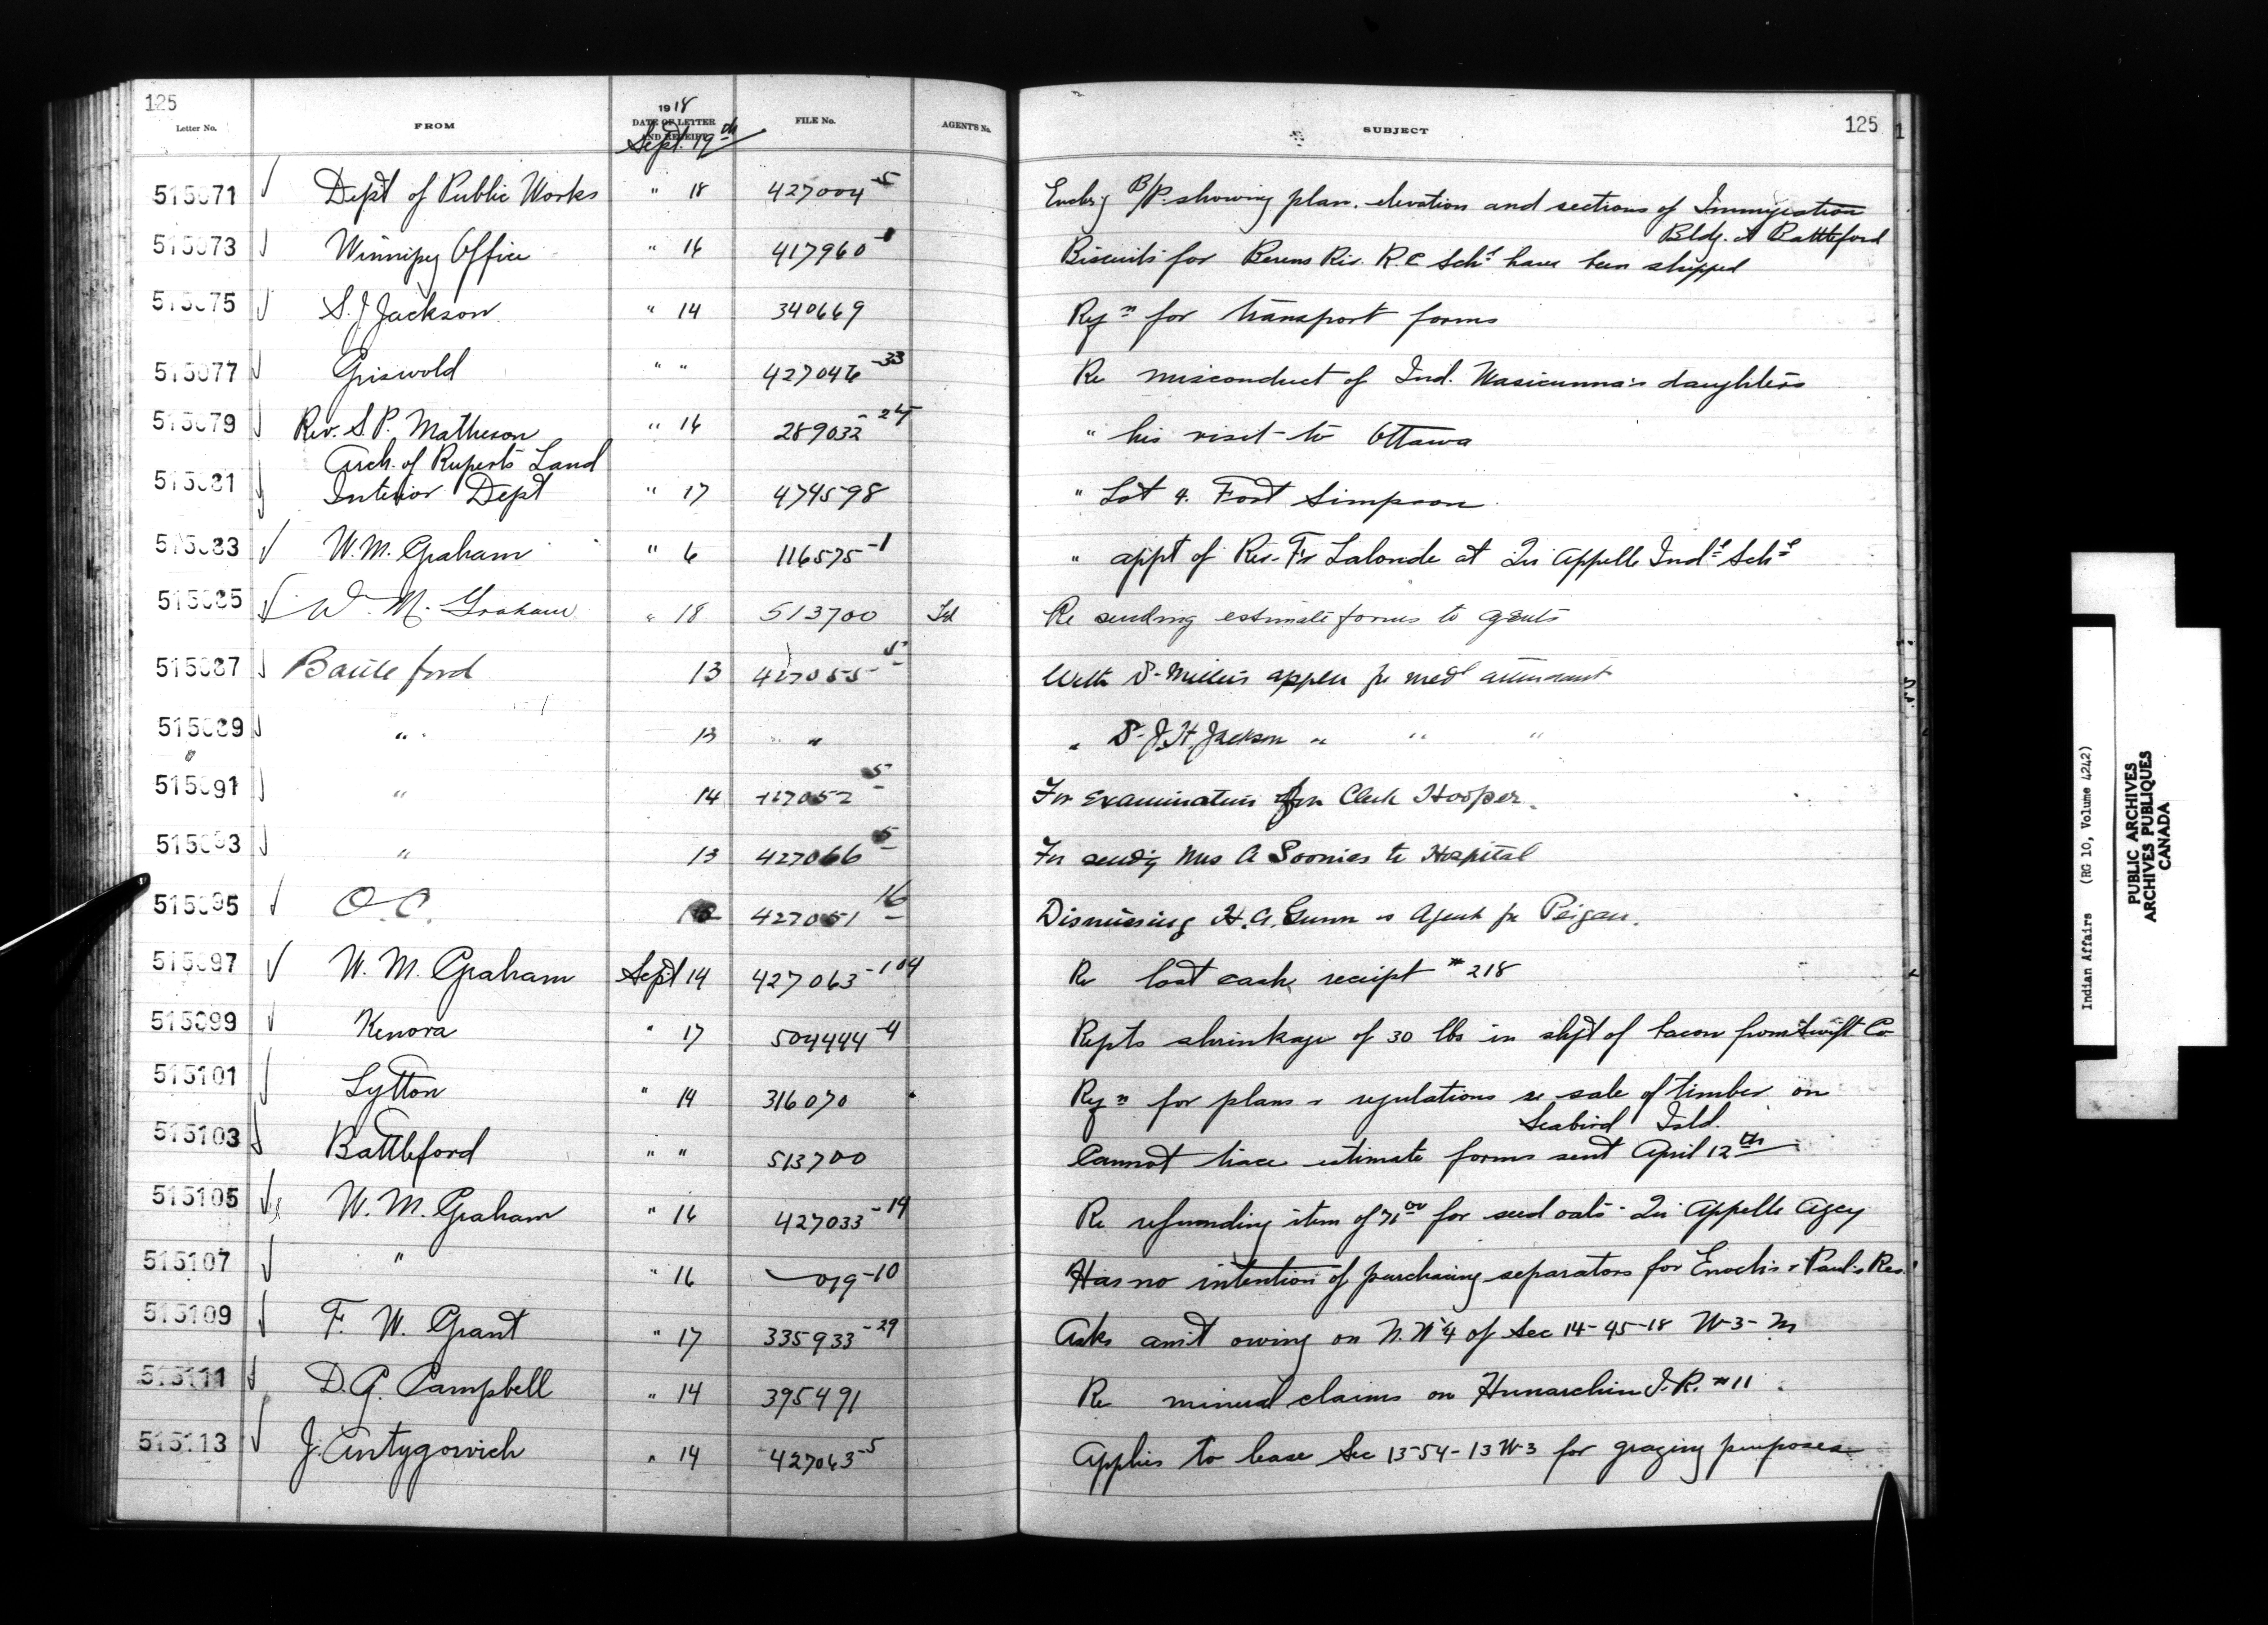 125
Letter No. FROM 1918 DATE OF LETTER AND RECEIPT FILE No. AGENT'S No. SUBJECT 125
Sept. 19th
515071 Dept of Public Works " 18 427004-5 Enclsg B/P. showing plan, elevation and sections of Immigration
Bldg. at Battleford
515073 Winnipeg Office " 16 417960 Biscuits for Berens Riv. R.C Schl have been shipped
515075 S.J. Jackson " 14 340669 Reqn for transport forms
515077 Griswold " " 427046-33 Re misconduct of Ind. Wasicunna's daughters
515079 Rev. S.P. Matheson " 16 289032-24 " his visit to Ottawa
Arch. of Ruperts Land
515081 Interior Dept " 17 474598 " Lot 4. Fort Simpson
515083 W.M. Graham " 6 116575-1 " appt of Rev. Fr Lalonde at Qu Appelle Indl Schl
515085 W. M. Graham " 18 513700 Re sending estimate forms to agents
515087 Battleford 13 427055-5 With Dr Millers appln for medl attendant
515089 " 13 " " Dr J.H. Jackson " " "
515091 " 14 427052-5 For examination for Clerk Hooper.
515093 " 13 427066-5 For sendg Mrs A Soonias to Hospital
515095 O.C. 427051-16 Dismissing H.A. Gunn as Agent for Peigan.
515097 W. M. Graham Sept 14 427063-104 Re lost cash receipt #218
515099 Kenora " 17 504444-4 Repts shrinkage of 30 lbs in shpt of bacon from Swift Co
515101 Lytton " 14 316070 Reqn for plans & regulations re sale of timber on
Seabird Isld.
515103 Battleford " " 513700 Cannot trace estimate forms sent April 12th
515105 W. M. Graham " 16 427033-14 Re refunding item of 71.00 for seed oats - Qu Appelle Agcy
515107 " " 16 019-10 Has no intention of purchasing separators for Enoch's & Paul's Res.
515109 F. W. Grant " 17 335933-29 Asks amt owing on N.W 1/4 of Sec 14-45-18 W-3-M
515111 D.G. Campbell " 14 395491 Re mineral claims on Hunarchin I.R. #11
515113 J. Antygowich " 14 427063-5 Applies to lease Sec 13-54-13 W-3 for grazing purposes
Indian Affairs (RG 10, Volume 4242)
PUBLIC ARCHIVES
ARCHIVES PUBLIQUES
CANADA